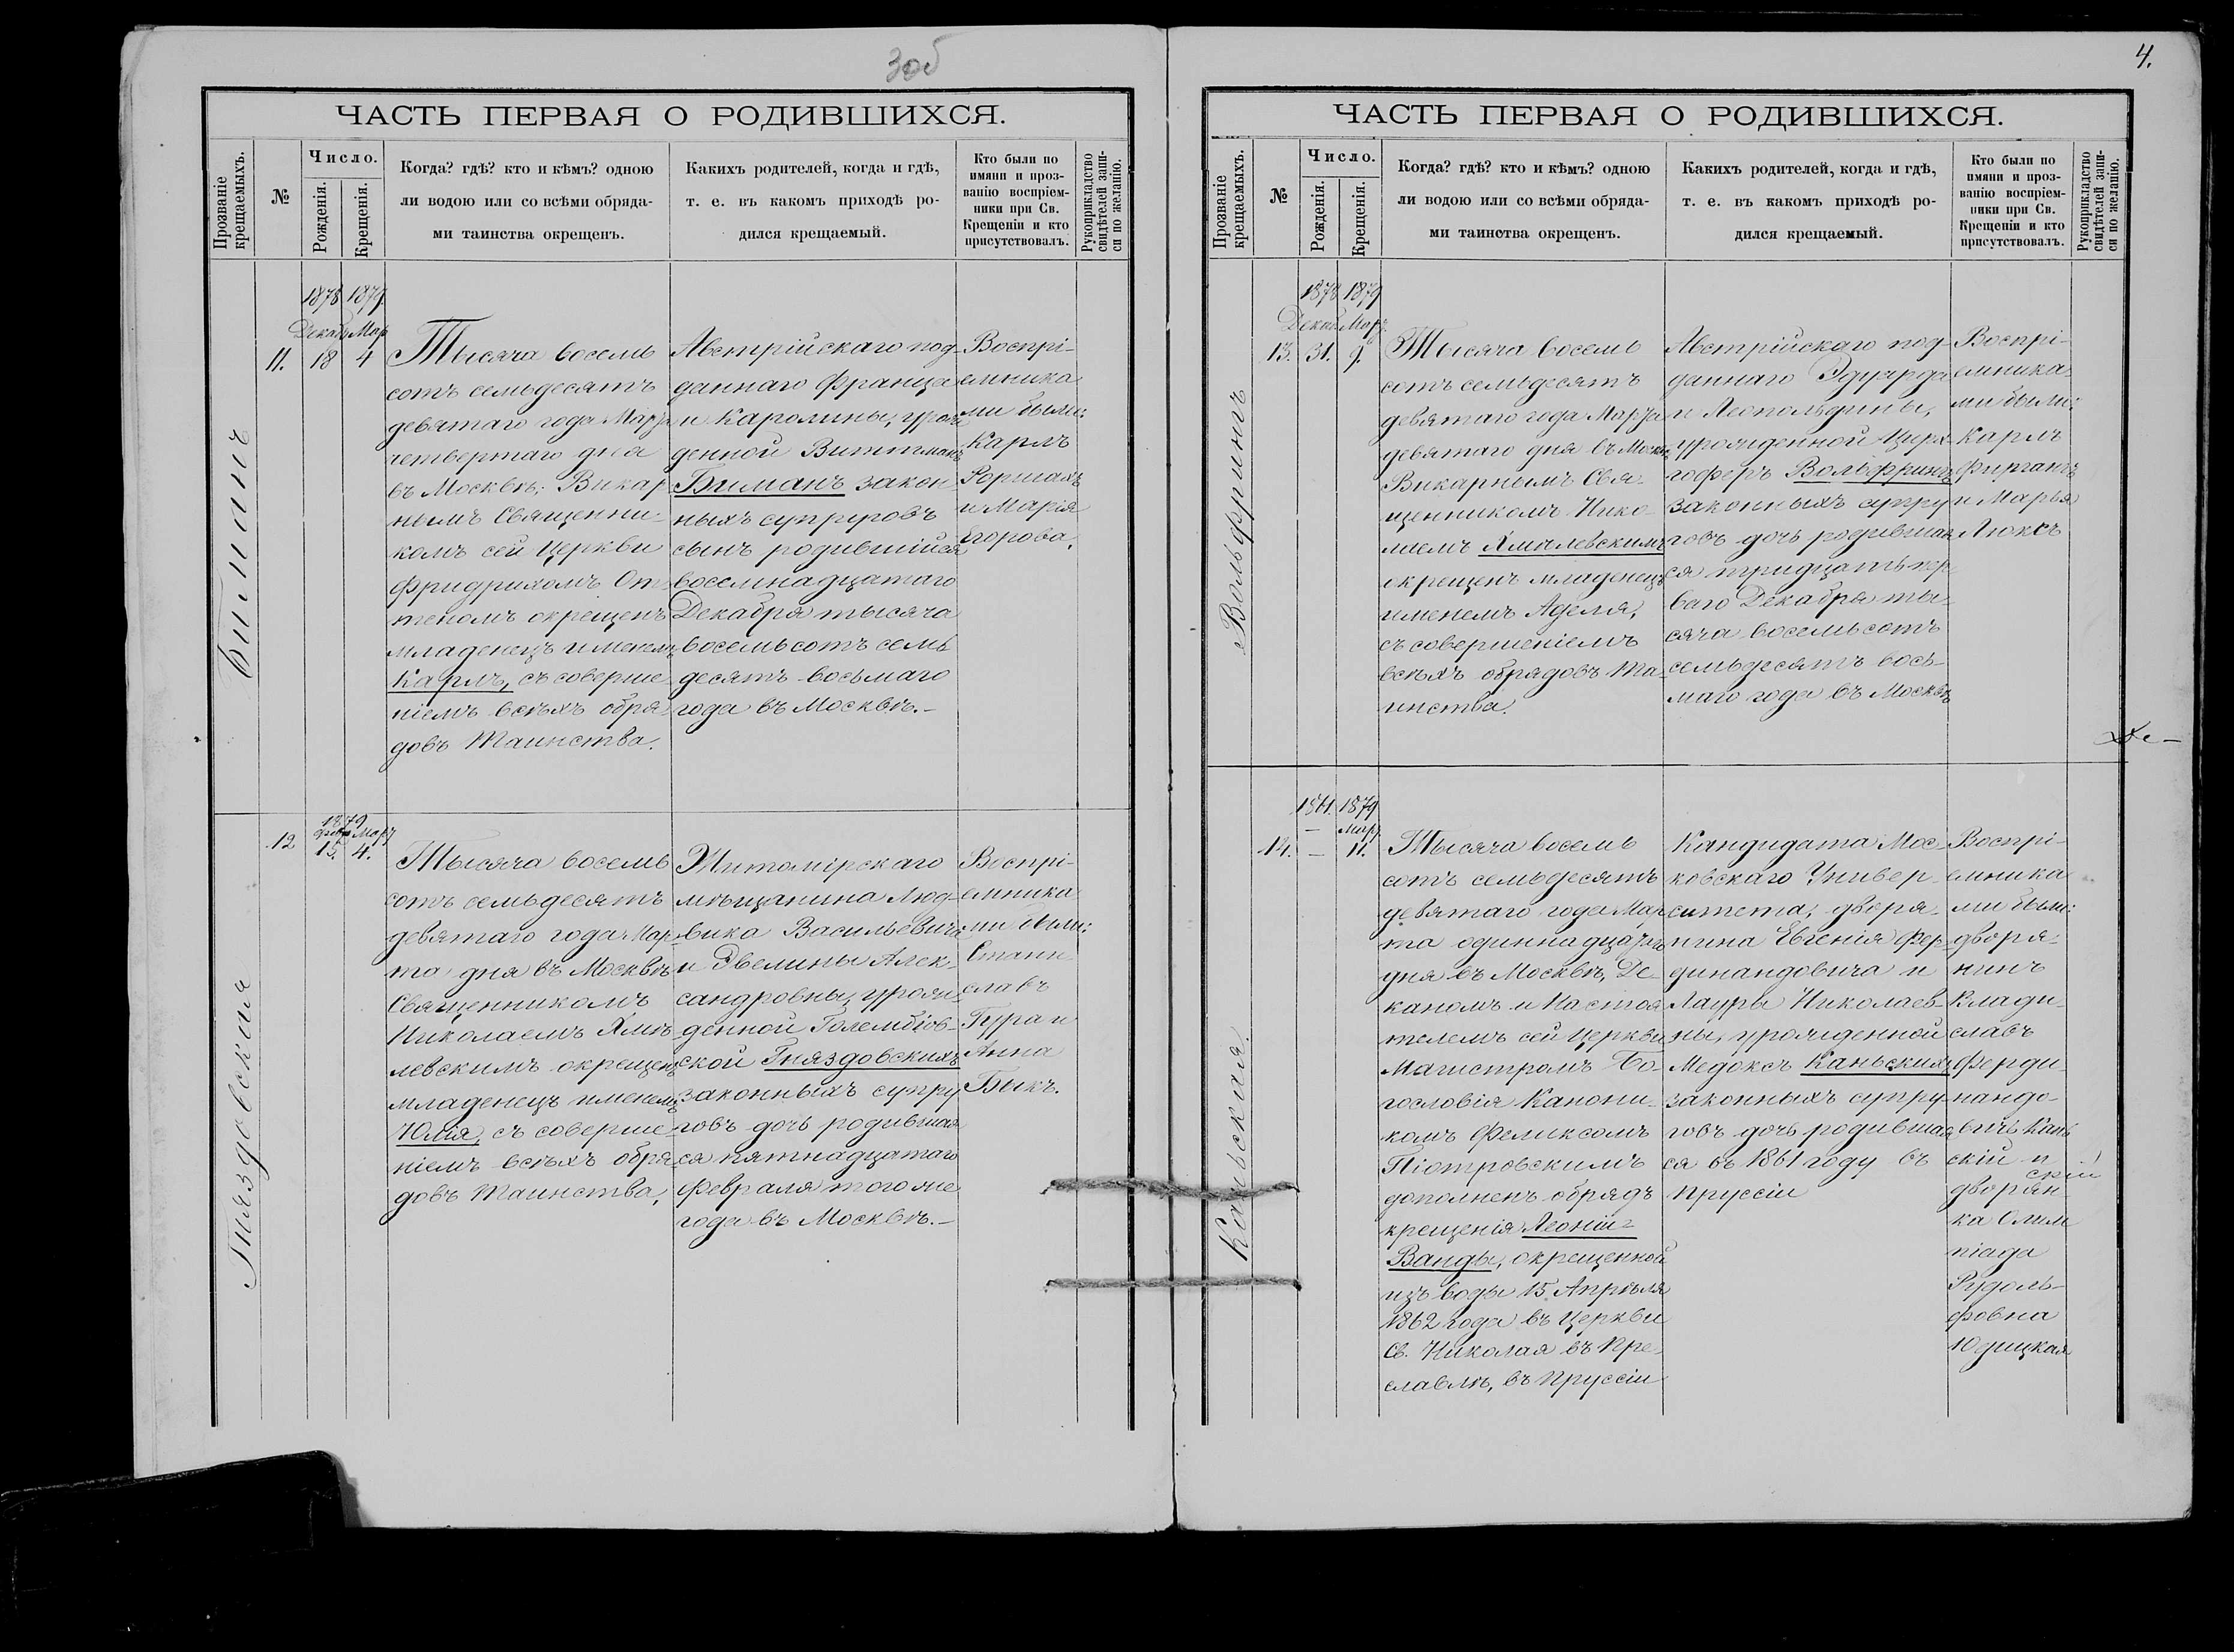 3об
ЧАСТЬ ПЕРВАЯ О РОДИВШИХСЯ.
Прозваніе
крещаемыхъ.
№
Число.
Рожденія.
Крещенія.
Когда? гдѣ? кто и кѣмъ? одною
ли водою или со всѣми обряда-
ми таинства окрещенъ.
Какихъ родителей, когда и гдѣ,
т. е. въ какомъ приходѣ ро-
дился крещаемый.
Кто были по
имяни и проз-
ванію воспріем-
ники при Св.
Крещеніи и кто
присутствовалъ.
Рукоприкладство
свидѣтелей запи-
си по желанію.
Биманъ
11.
1878 1879.
Декаб. Мар
18 4
Тысяча восемь
сотъ семьдесятъ
девятаго года Марта
четвертаго дня
въ Москвѣ, Викар
нымъ Священни-
комъ сей Церкви
Фридрихомъ От-
теномъ окрещенъ
младенецъ именемъ
Карлъ, съ соверше
ніемъ всѣхъ обря
довъ Таинства.
Австрійскаго под-
даннаго Франца
и Каролины, урож
денной Виттманъ
Биманъ закон
ныхъ супруговъ
сынъ родившійся
восемнадцатаго
Декабря тысяча
восемьсотъ семь
десятъ восьмаго
года въ Москвѣ.-
Воспрі-
емника
ми были:
Карлъ
и Марія
Егорова.
Гняздовская
12
1879
Фев. Мар
15. 4.
Тысяча восемь
сотъ семьдесятъ
девятаго года Мар-
та дня въ Москвѣ
Священникомъ
Николаемъ Хмѣ-
левскимъ окрещенъ
младенецъ именемъ
Юлія, съ соверше-
ніемъ всѣхъ обря
довъ Таинства.
Житомірскаго
мѣщанина Люд-
вика Васильевича
и Эвелины Алек-
сандровны, урож-
денной Голембіов-
ской Гняздовскихъ
законныхъ супру
говъ дочь родившая
ся пятнадцатаго
Февраля того же
года въ Москвѣ.-
Воспрі-
емника
ми были:
Стани
славъ
Гура и
Анна
Быкъ.
4.
ЧАСТЬ ПЕРВАЯ О РОДИВШИХСЯ.
Прозваніе
крещаемыхъ.
№
Число.
Рожденія.
Крещенія.
Когда? гдѣ? кто и кѣмъ? одною
ли водою или со всѣми обряда-
ми таинства окрещенъ.
Какихъ родителей, когда и гдѣ,
т. е. въ какомъ приходѣ ро-
дился крещаемый.
Кто были по
имяни и проз-
ванію воспріем-
ники при Св.
Крещеніи и кто
присутствовалъ.
Рукоприкладство
свидѣтелей запи-
си по желанію.
Вольфрингъ
13.
1878 1879
Декаб. Мар.
31. 9.
Тысяча восемь
сотъ семьдесятъ
девятаго года Марта
девятаго дня въ Москвѣ
Викарнымъ Свя-
щенникомъ Нико-
лаемъ Хмѣлевскимъ
окрещенъ младенецъ
именемъ Аделя,
съ совершеніемъ
всѣхъ обрядовъ Та-
инства.
Австрійскаго под-
даннаго Эдуарда
и Леопольдины,
урожденной Цирх-
гоферъ Вольфрингъ
законныхъ супру
говъ дочь родившая
ся тридцать пер
ваго Декабря ты-
сяча восемьсотъ
семьдесятъ вось-
маго года въ Москвѣ
Воспрі-
емника
ми были:
Карлъ
Фирганъ
и Марья
Люксъ
Каньская.
14.
1861. 1879
— Мар.
— 11.
Тысяча восемь
сотъ семьдесятъ
девятаго года Мар
та одиннадцатаго
дня въ Москвѣ, Де-
каномъ и Настоя
телемъ сей Церкви
Магистромъ Бо-
гословія Канони-
комъ Феликсомъ
Піотровскимъ
дополненъ обрядъ
крещенія Леоніи-
Ванды, окрещенной
изъ воды 15 Апрѣля
1862 года въ Церкви
Св. Николая въ Бре
славлѣ, въ Пруссіи
Кандидата Мос-
ковскаго Универ-
ситета, дворя-
нина Евгенія Фер-
динандовича и
Лауры Николаев-
ны, урожденной
Медоксъ Каньскихъ
законныхъ супру-
говъ дочь родившая
ся въ 1861 году въ
Пруссіи
Воспрі-
емника
ми были:
дворя-
нинъ
Влади-
славъ
Ферди-
нандо-
вичъ Кань
скій и
скій
дворян
ка Олим
піада
Рудоль-
фовна
Юдицкая